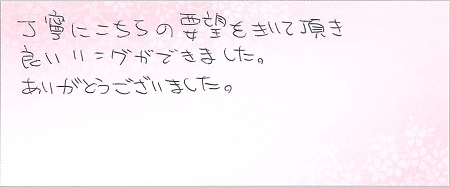 丁寧にこちらの要望をきいて頂き
良いリングができました。
ありがとうございました。